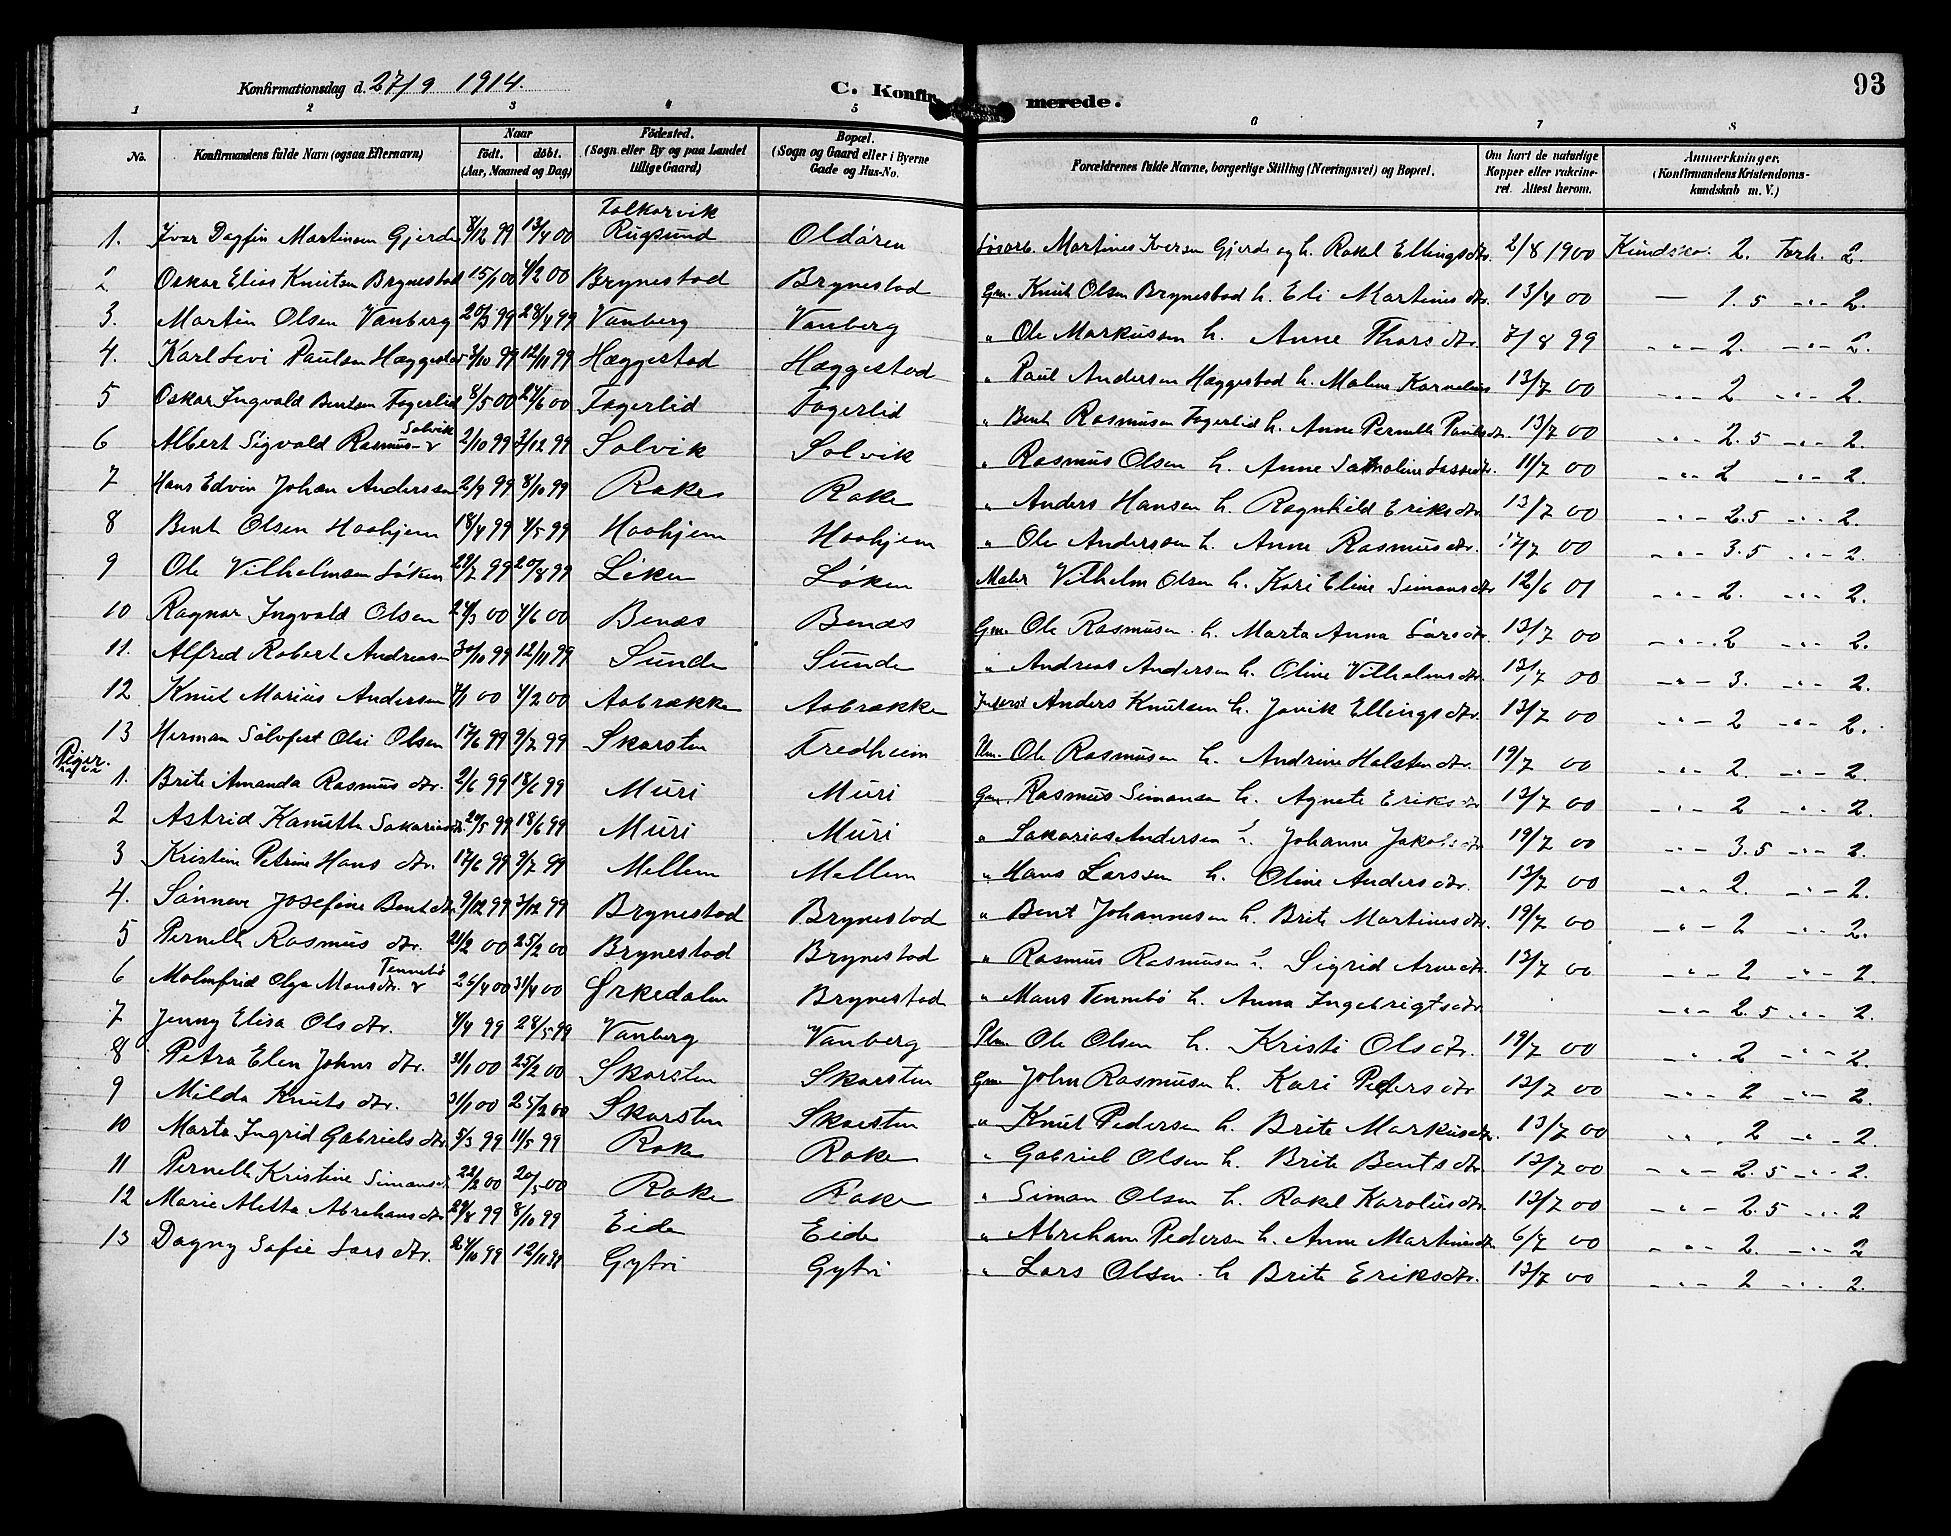 Konfirmationsdag d. 27/9 1914. C. Konfirmerede. 93
1 2 3 4 5 6 7 8
No. Konfirmandens fulde Navn (ogsaa Efternavn) Naar født. døbt. (Aar, Maaned og Dag) Fødested. (Sogn eller By og paa Landet tillige Gaard) Bopæl. (Sogn og Gaard eller i Byerne Gade og Hus-No. Forældrenes fulde Navne, borgerlige Stilling (Næringsvei) og Bopæl. Om havt de naturlige Kopper eller vakcineret. Attest herom. Anmærkninger. (Konfirmandens Kristendomskundskab m. V.)
1. Ivar Dagfin Martinsen Gjerde 8/12 99 13/4 00 Falkarvik Rugsund Oldøren Løsarb. Martines Iversen Gjerde og h. Rakel Ellingsdtr. 2/8 1900 Kundska: 2. Forh. 2.
2 Oskar Elias Knutsen Brynestad 15/1 00 4/2 00 Brynestad Brynestad Gm. Knut Olsen Brynestad h. Eli Martinusdtr. 13/4 00 — 1.5 -"- 2.
3. Martin Olsen Vanberg 20/3 99 28/4 99 Vanberg Vanberg " Ole Markussen h. Anne Thorsdtr. 7/8 99 -"- 2. -"- 2.
4. Karl Levi Paulsen Hæggestad 3/10 99 12/11 99 Hæggestad Hæggestad " Paul Andersen Hæggestad h. Malene Kornelius 13/7 00 -"- 2 -"- 2.
5 Oskar Ingvald Bentsen Fagerlid 8/5 00 24/6 00 Fagerlid Fagerlid " Bent Rasmusen Fagerlid h. Anne Pernelle Paulsdtr. 13/7 00 -"- 2.5 -"- 2.
6 Albert Sigvald Rasmus- Solvik 2/10 99 3/12 99 Solvik Solvik " Rasmus Olsen h. Anne 11/7 00 -"- 2 -"- 2.
7 Hans Edvin Johan Andersen 2/9 99 8/10 99 Rake Rake " Anders Hansen h. Ragnhild Eriksdtr. 13/7 00 -"- 2.5 -"- 2.
8 Bent Olsen Haahjem 18/4 99 4/5 99 Haahjem Haahjem " Ole Andersen h. Anne Rasmusdtr. 00 -"- 3.5 -"- 2.
9 Ole Vilhelmsen Løken 29/7 99 20/8 99 Løken Løken Maler Vilhelm Olsen h. Kari Eline Simonsdtr 12/6 01 -"- 2. -"- 2.
10 Ragnar Ingvald Olsen 24/3 00 4/6 00 Benæs Benæs Gm. Ole Rasmusen h. Marta Anna Larsdtr. 13/7 00 -"- 2 -"- 2.
11. Alfred Robert Andreasen 30/10 99 12/11 99 Sunde Sunde " Andreas Andersen h. Oline Vilhelmsdtr. 13/7 00 -"- 3. -"- 2.
12 Knut Marius Andersen 7/1 00 4/2 00 Aabrække Aabrække Anders Knutsen h. Jovik Ellingsdtr. 13/7 00 -"- 2 -"- 2.
13 Herman Sølvfest Olsen 17/6 99 9/7 99 Skarsten Fredheim Ole Rasmusen h. Andrine Halstendtr. 19/7 00 -"- 2. -"- 2.
Piger.
1. Brite Amanda Rasmusdtr. 2/6 99 18/6 99 Muri Muri Gm. Rasmus Simonsen h. Agnete Eriksdtr 13/7 00 -"- 2 -"- 2.
2 Astrid Kanutte Sakariasdtr. 20/5 99 18/6 99 Muri Muri " Sakarias Andersen h. Johanne Jakobsdtr 19/7 00 -"- 3.5 -"- 2.
3 Kristine Petrine Hansdtr. 17/6 99 9/7 99 Mellem Mellem " Hans Larssen h. Oline Andersdtr. 13/7 00 -"- 2. -"- 2.
4. Sønneve Josefine Bentsdtr. 9/12 99 3/12 99 Brynestad Brynestad " Bent Johannesen h. Brite Martinusdtr. 19/7 00 -"- 2 -"- 2.
5 Pernelle Rasmusdtr. 21/2 00 25/2 00 Brynestad Brynestad " Rasmus Rasmusen h. Sigrid Arnedtr. 13/7 00 -"- 2 -"- 2.
6 Malmfrid Olga Monsdtr. Tennebø 26/4 00 31/4 00 Ørkedalen Brynestad " Mons Tennebø h. Anna Ingebrigtsdtr -"- 2.5 -"- 2.
7 Jenny Elisa Olsdtr. 4/4 99 28/5 99 Vanberg Vanberg Ole Olsen h. Kristi Olsdtr. 19/7 00 -"- 2 -"- 2.
8 Petra Elen Johnsdtr. 31/1 00 25/2 00 Skarsten Skarsten Gm. John Rasmusen h. Kari Pedersdtr 13/7 00 -"- 2 -"- 2.
9 Milda Knutsdtr. 31/1 00 25/2 00 Skarsten Skarsten " Knut Pedersen h. Brite Markusdtr. 13/7 00 -"- 2 -"- 2.
10 Marta Ingrid Gabrielsdtr 5/3 99 11/5 99 Rake Rake " Gabriel Olsen h. Brite Bentsdtr 13/7 00 -"- 2.5 -"- 2.
11 Pernelle Kristine Simonsdtr 22/2 00 20/5 00 Rake Rake " Simon Olsen h. Rakel Karolusdtr. 13/7 00 -"- 2.5 -"- 2
12 Marie Aletta Abrahamsdtr 29/8 99 8/10 99 Eide Eide " Abraham Pedersen h. Anne Martinusdtr 6/7 00 -"- 2. -"- 2
13 Dagny Sofie Larsdtr. 24/10 99 12/11 99 Gytri Gytri " Lars Olsen h Brite Eriksdtr. 13/7 00 -"- 2 -"- 2.